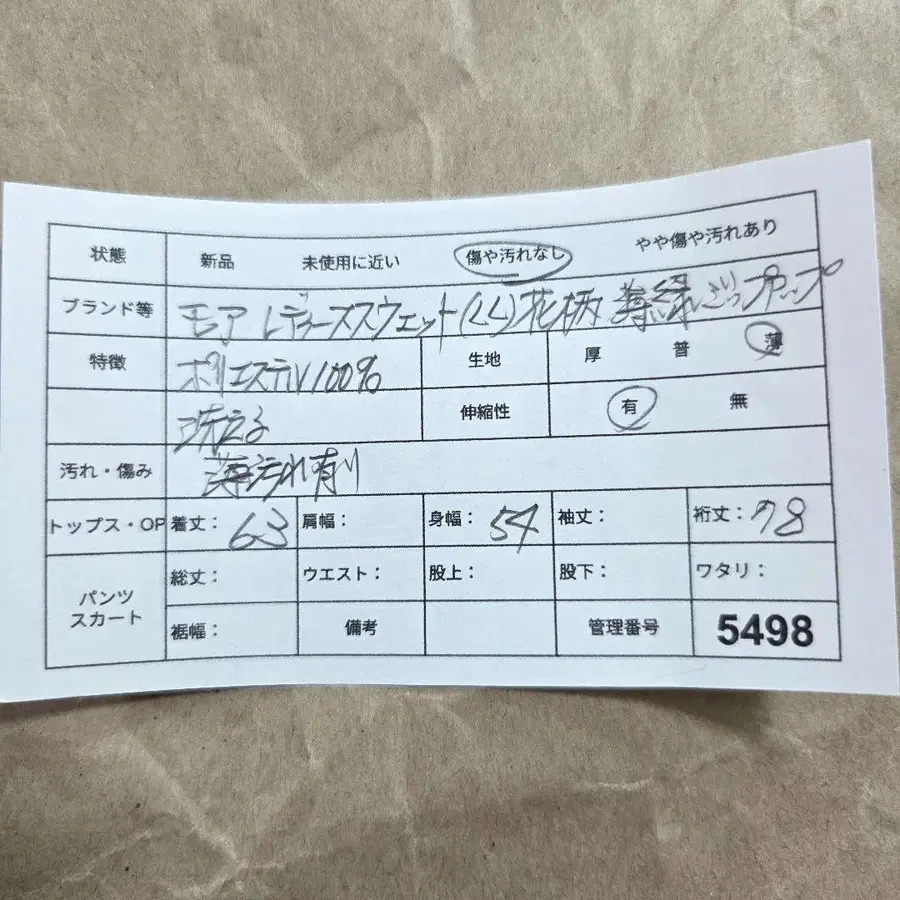 状態 新品 未使用に近い 傷や汚れなし やや傷や汚れあり
ブランド等 モア レディーススウェット(LL)花柄 薄緑 ジップアップ
特徴 ポリエステル100% 生地 厚 普 薄
洗える 伸縮性 有 無
汚れ・傷み 薄汚れ有り
トップス・OP 着丈: 63 肩幅: 身幅: 54 袖丈: 裄丈: 78
パンツ スカート 総丈: ウエスト: 股上: 股下: ワタリ:
裾幅: 備考 管理番号 5498